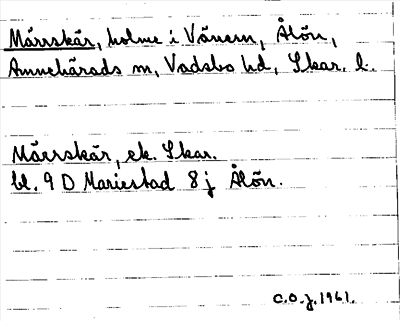 Mårrskär, holme i Vänern, Ålön,
Amnehärads sn, Vadsbo hd, Skar. l.
Mårrskär, ek. Skar.
bl. 9 D Mariestad 8 j Ålön.
C.O.J. 1961.